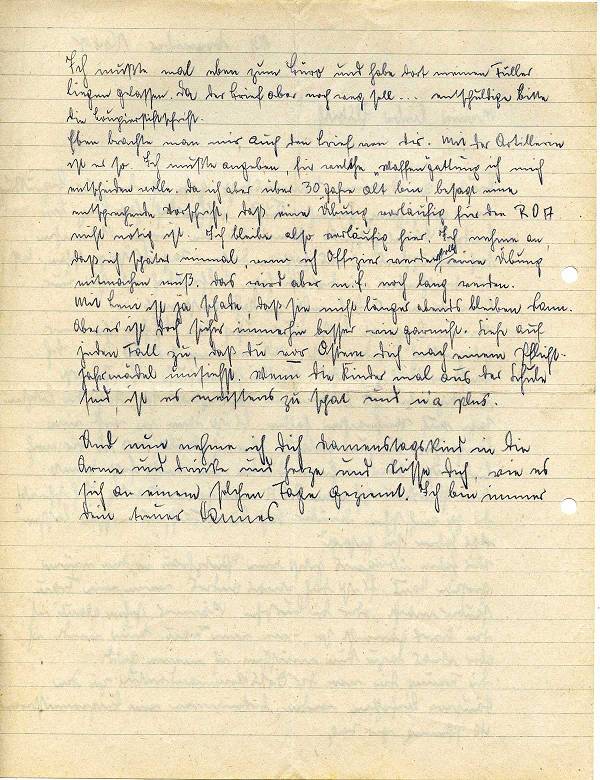 Ich mußte mal eben zum Büro und habe dort meinen Füller
liegen gelassen. Da der Brief aber noch weg soll ... entschuldige bitte
die Kopierstiftschrift.
Eben brachte man mir auch den Brief von Dir. Mit der Artillerie
ist es so. Ich mußte angeben, für welche „Waffengattung ich mich
entscheiden wolle. Da ich aber über 30 Jahre alt bin besagt eine
entsprechende Vorschrift, daß eine Übung vorläufig für den ROA
nicht nötig ist. Ich bleibe also vorläufig hier. Ich nehme an,
daß ich später einmal, wenn ich Offizier werden soll, eine Übung
mitmachen muß. Das wird aber m.E. noch lang werden.
Mit ist ja schade, daß sie nicht länger abends bleiben kann.
Aber es ist doch sicher immerhin besser wie garnicht. Sieh auf
jeden Fall zu, daß Du vor Ostern Dich nach einem Pflicht-
jahrmädel umsiehst. Wenn die Kinder mal aus der Schule
sind, ist es meistens zu spät und
Und nun nehme ich Dich Damenstagskind in die
Arme und drücke und herze und küsse Dich, wie es
sich an einem solchen Tage geziemt. Ich bin immer
Dein treuer Hannes